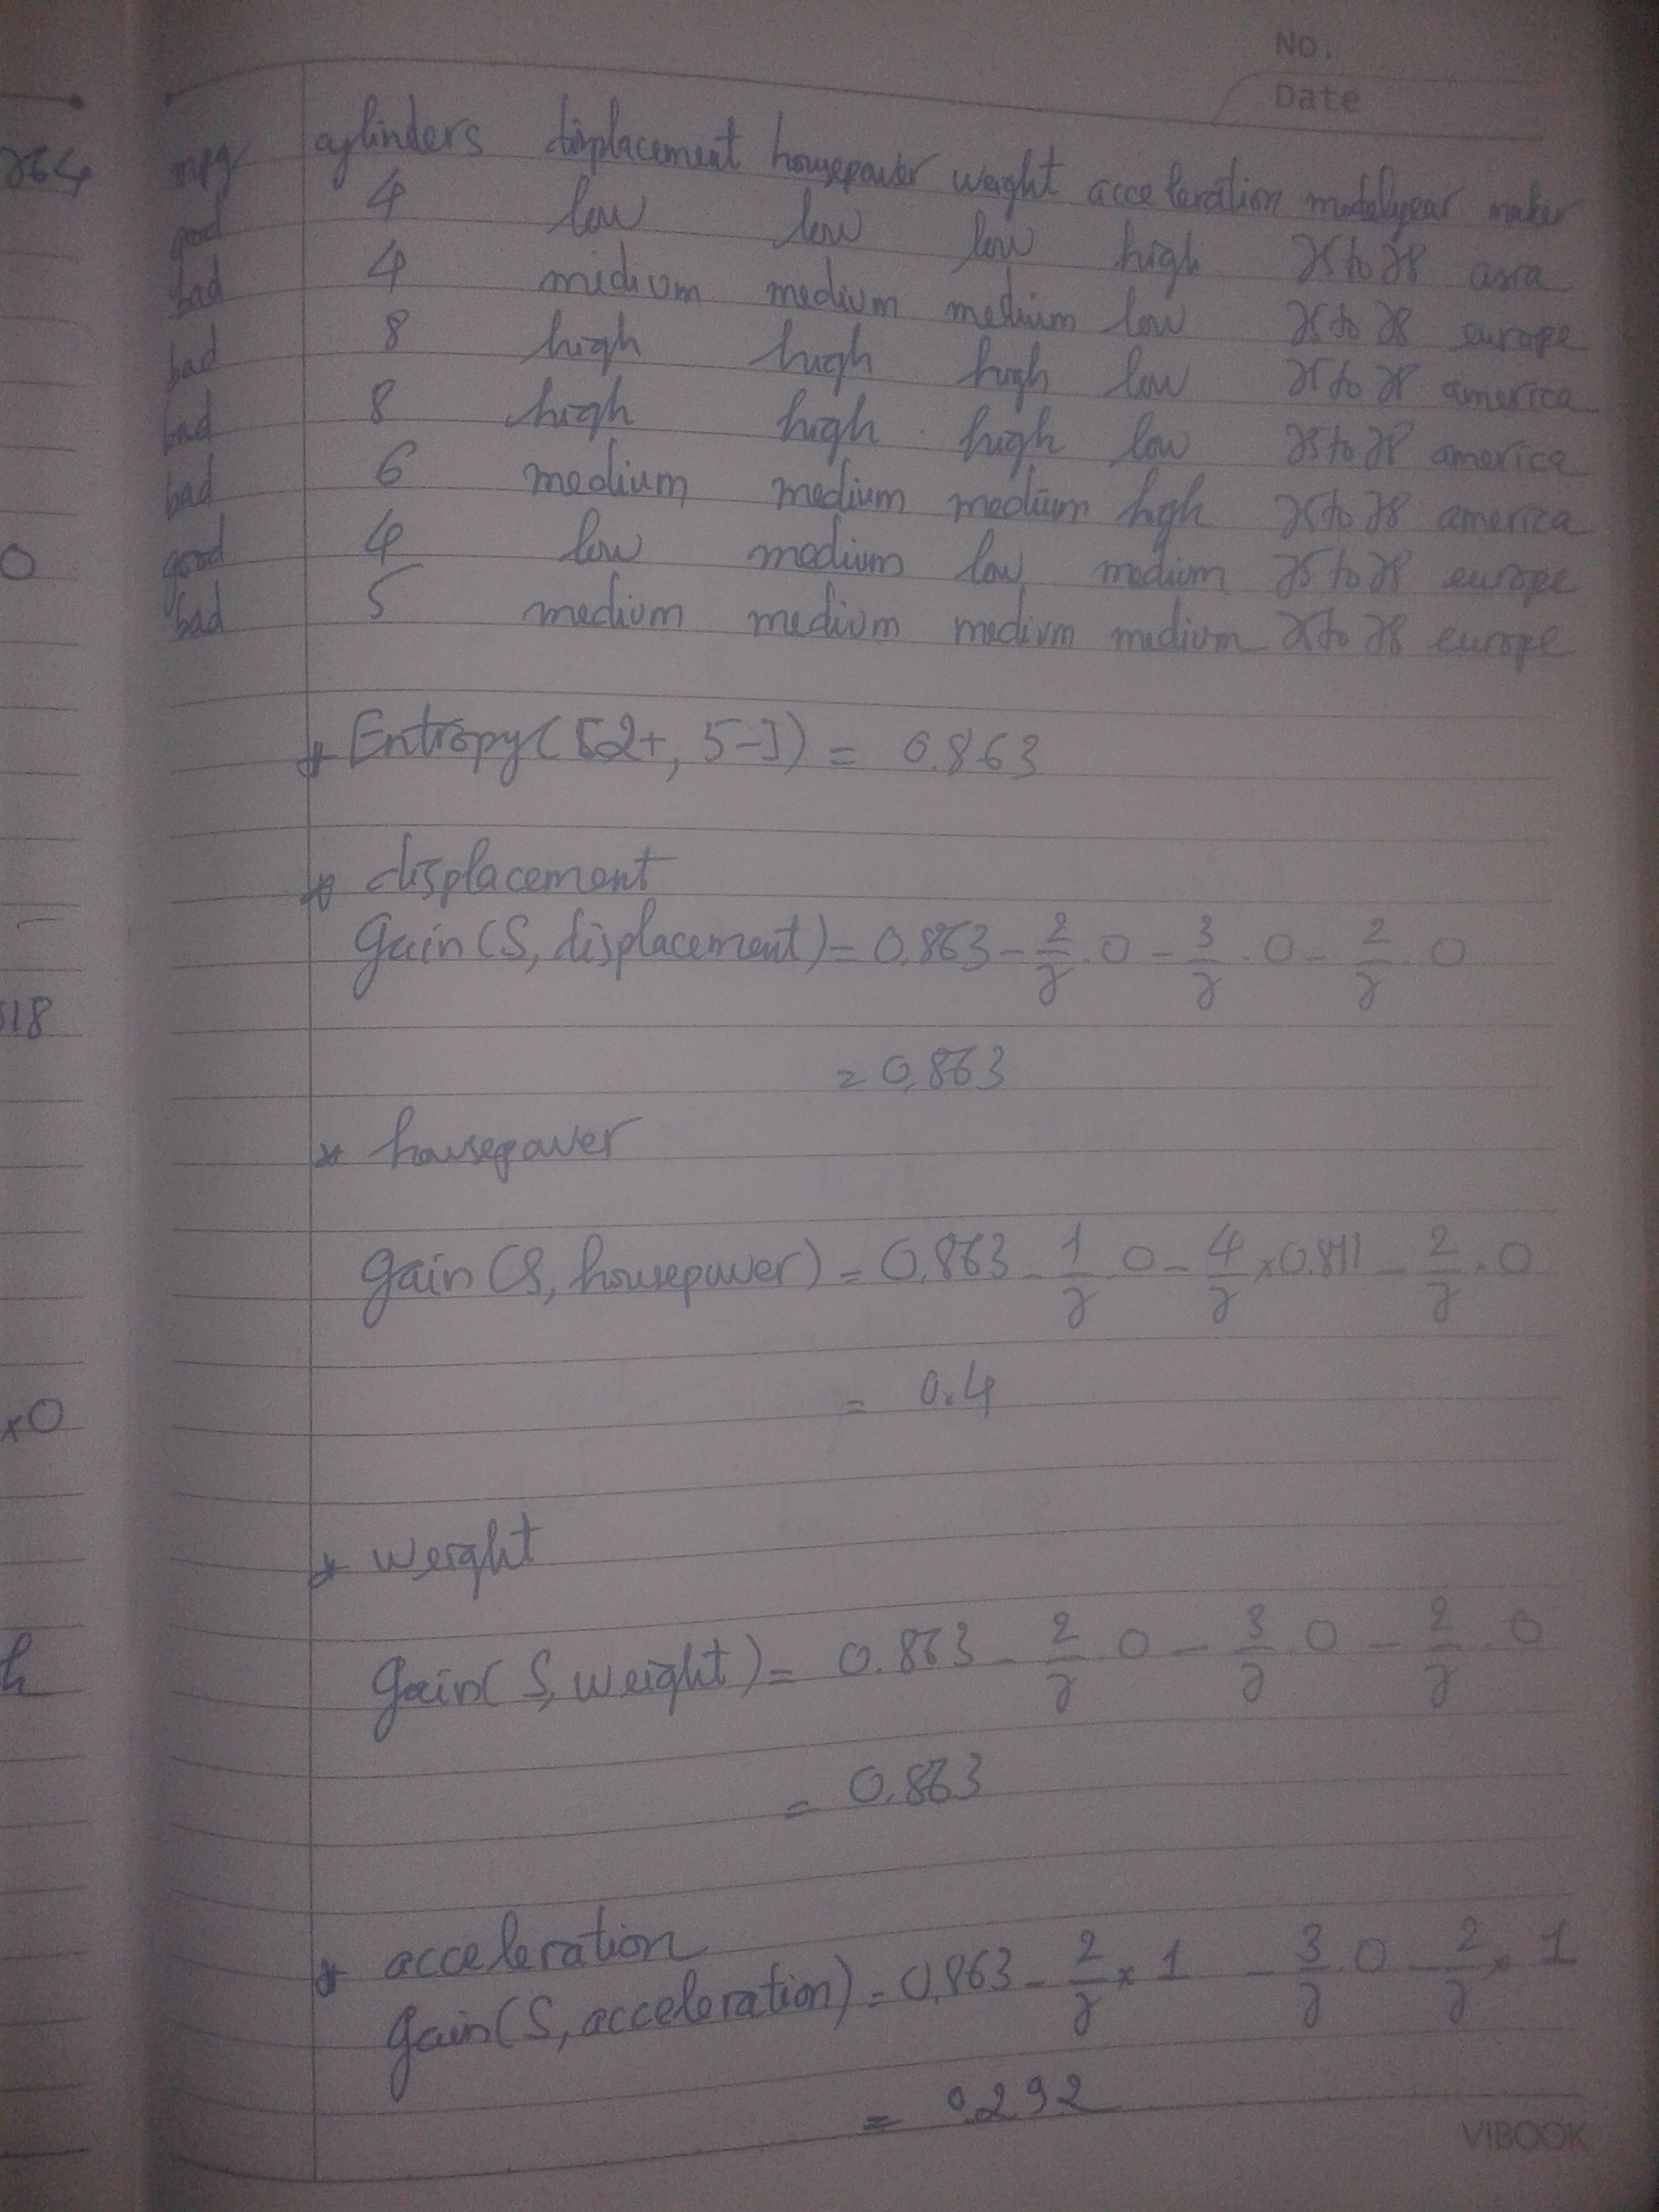 No.
Date
764
mpg cylinders displacement housepower weight acceleration modelyear maker
good 4 low low low high 75 to 78 asia
bad 4 midium medium medium low 75 to 78 europe
bad 8 high high high low 75 to 78 america
bad 8 high high high low 75 to 78 america
bad 6 medium medium medium high 75 to 78 america
good 4 low medium low medium 75 to 78 europe
0
bad 5 medium medium medium medium 75 to 78 europe
* Entropy([2+, 5-]) = 0.863
* displacement
Gain(S, displacement) = 0.863 - 2/7 . 0 - 3/7 . 0 - 2/7 . 0
518
= 0.863
* housepower
Gain(S, housepower) = 0.863 - 1/7 . 0 - 4/7 x 0.811 - 2/7 . 0
= 0.4
x0
* weight
Gain(S, weight) = 0.863 - 2/7 . 0 - 3/7 . 0 - 2/7 . 0
h
= 0.863
* acceleration
Gain(S, acceleration) = 0.863 - 2/7 x 1 - 3/7 . 0 - 2/7 x 1
= 0.292
VIBOOK